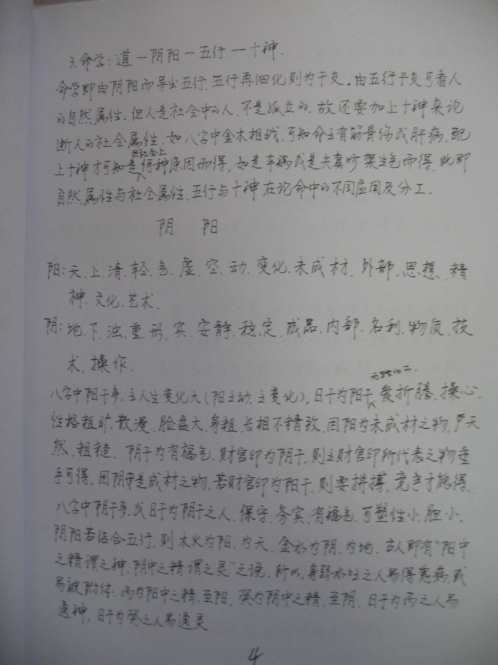 3.命学:道一阴阳一五行一十神.
命学即由阴阳而导出五行,五行再细化则为干支。由五行干支可看人
的自然属性。但人是社会中的人、不是孤立的,故还要加上十神来论
断人的社会属性。如八字中金木相战,可知命主有筋骨伤或肝病,配
上十神才可知是何种原因而得,如是车祸或是夫妻吵架生气而得,此即
自然属性与社会属性、五行与十神在论命中的不同应用及分工.
阴 阳
阳:天、上、清、轻、气、虚、空、动、变化、未成材、外部、思想、精
神、文化、艺术.
阴:地、下、浊、重、形、实、安静、稳定、成品、内部、名利、物质、技
术、操作.
八字中阳干多,主人生变化大(阳主动,主变化),日干为阳干,爱折腾、操心、
性格粗犷、散漫、脸盘大、身粗、长相不精致,因阳为未成材之物,
然、粗糙.阴干为有福气,财官印为阴干,则主财官印所代表之物垂
手可得,因阴干是成材之物,若财官印为阳干,则要拼搏、竞争才能得.
八字中阴干多,或日干为阴干之人,保守、务实、有福气、可塑性小、胆小.
阴阳若结合五行,则木火为阳、为天,金水为阴、为地.古人即有“阳中
之精谓之神,阴中之精谓之灵”之说,所以,身弱水旺之人易得癔病或
易被附体:丙为阳中之精,至阳,癸为阴中之精,至阴,日干为丙之人易
通神,日干为癸之人易通灵
4